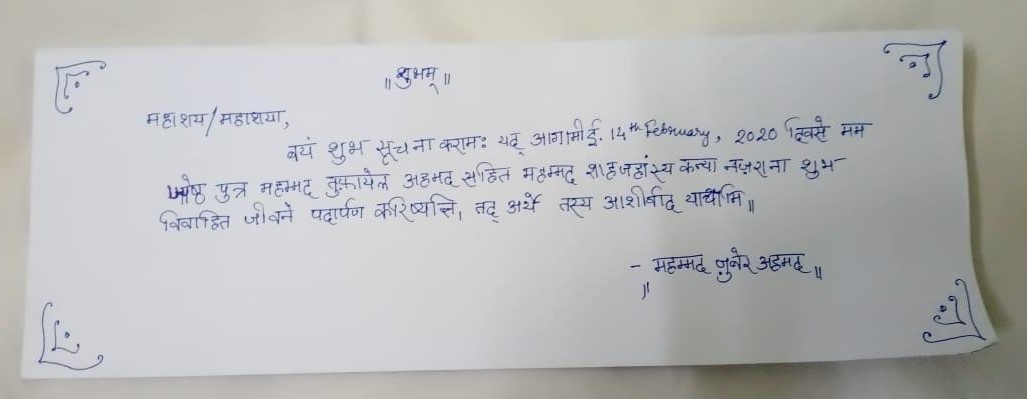 ॥ शुभम् ॥
महाशय/महाशया,
वयं शुभ सूचना कराम: यद् आगामी ई. 14th February, 2020 दिवसे मम
ज्येष्ठ पुत्र महम्मद तुफायेल अहमद सहित महम्मद शाहजहांस्य कन्या नज़राना शुभ-
विवाहित जीवने पदार्पण करिष्यन्ति, तद् अर्थे तस्य आशीर्वाद याचामि॥
- महम्मद ज़ुबेर अहमद॥
॥